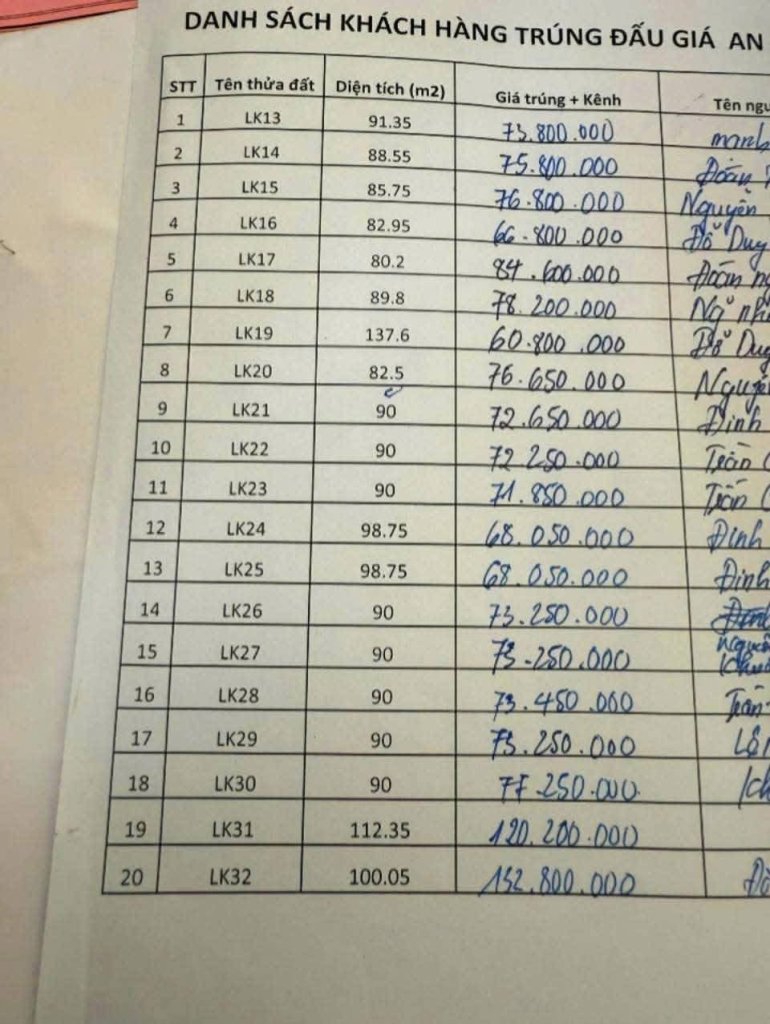 DANH SÁCH KHÁCH HÀNG TRÚNG ĐẤU GIÁ AN
STT Tên thửa đất Diện tích (m2) Giá trúng + Kênh Tên ngư
1 LK13 91.35 73.800.000 mạnh
2 LK14 88.55 75.800.000 Đoàn
3 LK15 85.75 76.800.000 Nguyễn
4 LK16 82.95 66.800.000 Đỗ Duy
5 LK17 80.2 84.600.000 Đoàn ng
6 LK18 89.8 78.200.000 Ng nh
7 LK19 137.6 60.800.000 Đỗ Duy
8 LK20 82.5 76.650.000 Nguyễ
9 LK21 90 72.650.000 Đinh
10 LK22 90 72.250.000 Trần
11 LK23 90 71.850.000 Trần
12 LK24 98.75 68.050.000 Đinh
13 LK25 98.75 68.050.000 Đinh
14 LK26 90 73.250.000
15 LK27 90 73.250.000
16 LK28 90 73.450.000 Trần
17 LK29 90 73.250.000
18 LK30 90 77.250.000
19 LK31 112.35 120.200.000
20 LK32 100.05 132.800.000